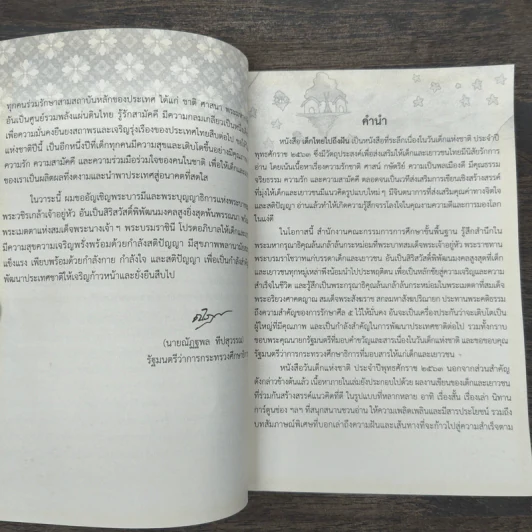 ทุกคนร่วมรักษาสามสถาบันหลักของประเทศ ได้แก่ ชาติ ศาสนา
อันเป็นศูนย์รวมพลังแผ่นดินไทย รู้รักสามัคคี มีความกลมเกลียว
เพื่อความมั่นคงยืนยงสถาพรและเจริญรุ่งเรืองของประเทศไทยสืบต่อไป
แห่งชาติปีนี้ เป็นอีกหนึ่งปีที่เด็กทุกคนมีความสุขและเติบโตขึ้นอย่างมี
ความรัก ความสามัคคี และความร่วมมือร่วมใจของคนในชาติ เพื่อให้เด็ก
ของเราเป็นผลิตผลที่งดงามและนำพาประเทศสู่อนาคตที่สดใส
ในวาระนี้ ผมขออัญเชิญพระบารมีและพระบุญญาธิการแห่ง
พระวชิรเกล้าเจ้าอยู่หัว อันเป็นสิริสวัสดิ์พิพัฒนมงคลสูงยิ่งสุดพ้นพรรณนา
พระเมตตาแห่งสมเด็จพระนางเจ้า ฯ พระบรมราชินี โปรดอภิบาลให้เด็ก
มีความสุขความเจริญพรั่งพร้อมด้วยกำลังสติปัญญา มีสุขภาพพลานามัย
แข็งแรง เพียบพร้อมด้วยกำลังกาย กำลังใจ และสติปัญญา เพื่อเป็นกำลัง
พัฒนาประเทศชาติให้เจริญก้าวหน้าและยั่งยืนสืบไป
(นายณัฏฐพล ทีปสุวรรณ)
รัฐมนตรีว่าการกระทรวงศึกษาธิการ
คำนำ
หนังสือ เด็กไทยไปถึงฝัน เป็นหนังสือที่ระลึกเนื่องในวันเด็กแห่งชาติ ประจำปี
พุทธศักราช ๒๕๖๓ ซึ่งมีวัตถุประสงค์เพื่อส่งเสริมให้เด็กและเยาวชนไทยมีนิสัยรักการ
อ่าน โดยเน้นเนื้อหาเรื่องความรักชาติ ศาสน์ กษัตริย์ ความเป็นพลเมืองดี มีคุณธรรม
จริยธรรม ความรัก และความสามัคคี ตลอดจนเป็นเวทีส่งเสริมการเขียนเชิงสร้างสรรค์
ที่มุ่งให้เด็กและเยาวชนมีแนวคิดรูปแบบใหม่ ๆ มีจินตนาการที่ส่งเสริมคุณค่าทางจิตใจ
และสติปัญญา อ่านแล้วทำให้เกิดความรู้สึกจรรโลงใจในคุณงามความดีและการมองโลก
ในแง่ดี
ในโอกาสนี้ สำนักงานคณะกรรมการการศึกษาขั้นพื้นฐาน รู้สึกสำนึกใน
พระมหากรุณาธิคุณล้นเกล้าล้นกระหม่อมที่พระบาทสมเด็จพระเจ้าอยู่หัว พระราชทาน
พระบรมราโชวาทแก่บรรดาเด็กและเยาวชน อันเป็นสิริสวัสดิ์พิพัฒนมงคลสูงสุดที่เด็ก
และเยาวชนทุกหมู่เหล่าพึงน้อมนำไปประพฤติตน เพื่อเป็นหลักชัยสู่ความเจริญและความ
สำเร็จในชีวิต และรู้สึกเป็นพระกรุณาธิคุณล้นเกล้าล้นกระหม่อมในพระเมตตาที่สมเด็จ
พระอริยวงศาคตญาณ สมเด็จพระสังฆราช สกลมหาสังฆปริณายก ประทานพระคติธรรม
ถึงความสำคัญของการรักษาศีล ๕ ไว้ให้มั่นคง อันจะเป็นเครื่องประกันว่าจะเติบโตเป็น
ผู้ใหญ่ที่มีคุณภาพ และเป็นกำลังสำคัญในการพัฒนาประเทศชาติต่อไป รวมทั้งกราบ
ขอบพระคุณนายกรัฐมนตรีที่มอบคำขวัญและสารเนื่องในวันเด็กแห่งชาติ และขอขอบคุณ
รัฐมนตรีว่าการกระทรวงศึกษาธิการที่มอบสารให้แก่เด็กและเยาวชน
หนังสือวันเด็กแห่งชาติ ประจำปีพุทธศักราช ๒๕๖๓ นอกจากส่วนสำคัญ
ดังกล่าวข้างต้นแล้ว เนื้อหาภายในเล่มยังประกอบไปด้วย ผลงานเขียนของเด็กและเยาวชน
ที่ร่วมกันสร้างสรรค์แนวคิดที่ดี ในรูปแบบที่หลากหลาย อาทิ เรื่องสั้น เรื่องเล่า นิทาน
การ์ตูนช่อง ฯลฯ ที่สนุกสนานชวนอ่าน ให้ความเพลิดเพลินและมีสารประโยชน์ รวมถึง
บทสัมภาษณ์พิเศษที่บอกเล่าถึงความฝันและเส้นทางที่จะก้าวไปสู่ความสำเร็จตาม